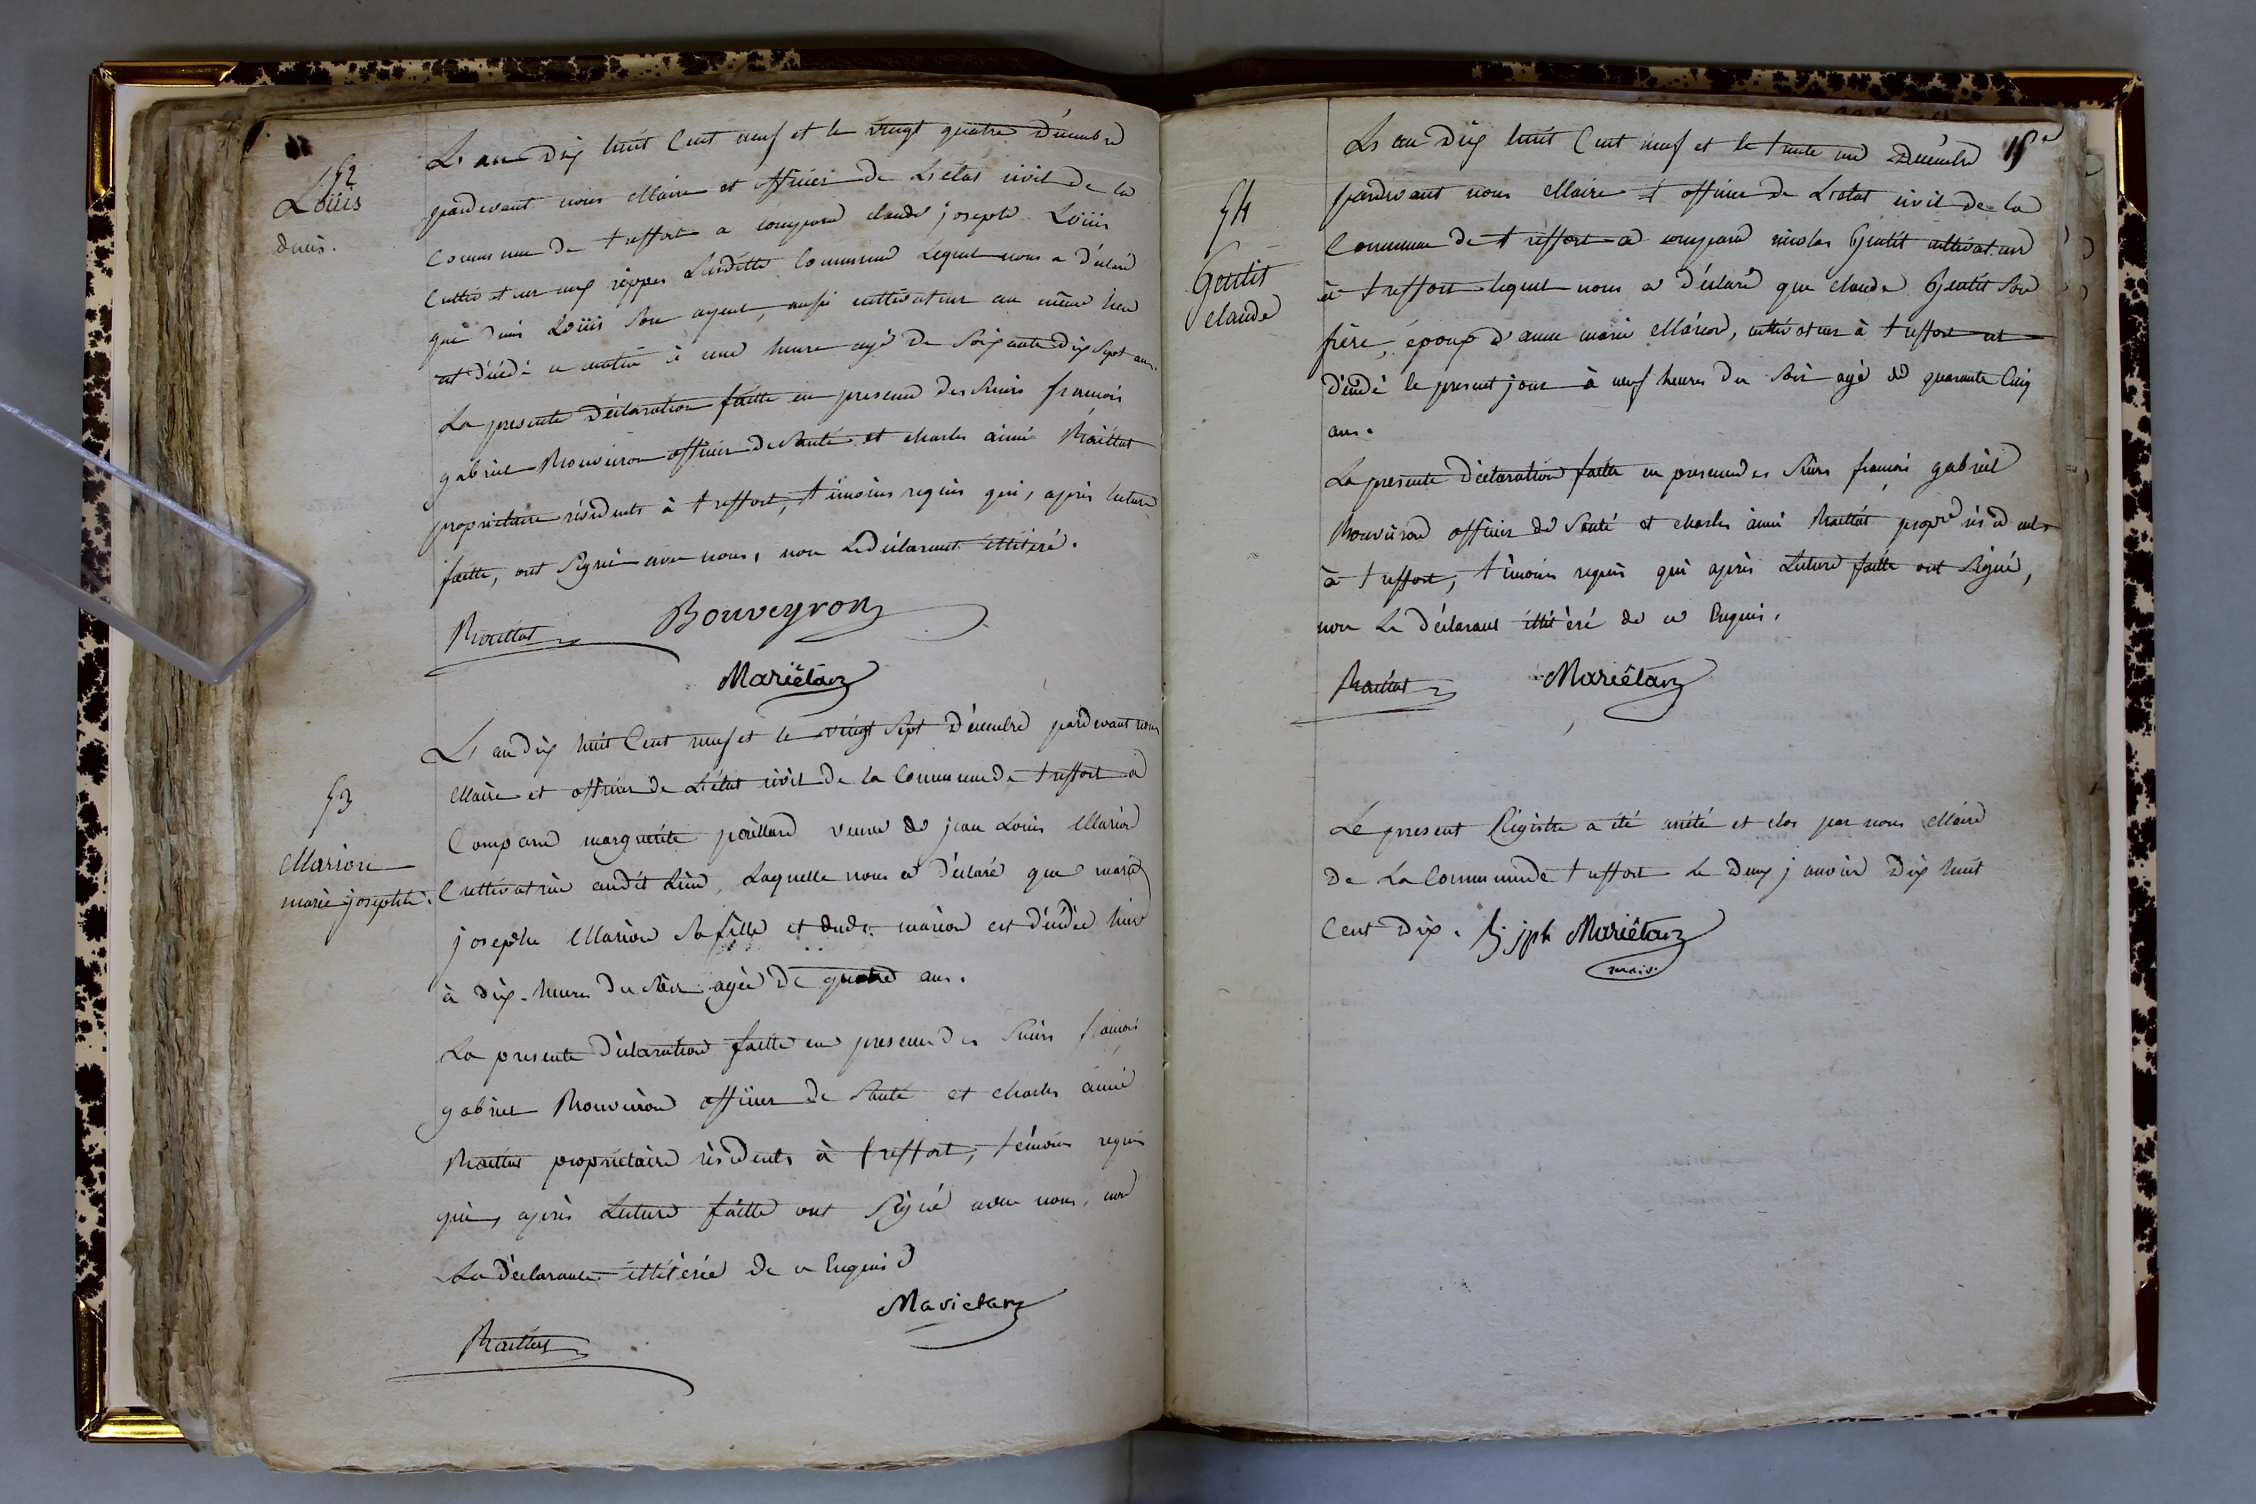 52
Loüis
denis.
L'an dix huit Cent neuf et le vingt quatre Décembre
pardevant nous Maire et officier de L'état civil de la
Commune de treffort a comparu claude joseph Loüis
Cultivateur aux rippes Susditte Commune Lequel nous a déclaré
que denis Loüis Son ayeul, aussi cultivateur au même lieu
est décédé ce matin à une heure agé de Soixante dix Sept ans.
La presente déclaration faitte en presence des Sieurs françois
gabriel Bouveiron officier de Santé et charles aiméRaittat
proprietaire résidents à treffort, témoins requis qui, après lecture
faitte, ont Signé avec nous, non Le déclarant illitéré.
Raittat Bouveyron
Mariétan
53
Marion
marie josephte.
L'an dix huit Cent neuf et le vingt Sept Décembre pardevant nous
Maire et officier de L'état civil de la Commune de treffort a
Comparu marguerite paillard veuve de jean Louis Marion
Cultivatrice audit Lieu, Laquelle nous a déclaré que marie
josephte Marion Sa fille et dud. marion est décédée hier
à dix heures du Soir agée de quatre ans.
La presente déclaration faitte en presence des Sieurs françois
gabriel Bouveiron officier de Santé et charles aimé
Raittat proprietaire résidents à treffort, témoins requis
qui, après Lecture faitte ont Signé avec nous, non
La déclarante illitérée de ce Enquise
Marietan
Raittat
15e
54
Gentit
claude
L'an dix huit Cent neuf et le trente un Décembre
pardevant nous Maire et officier de L'état civil de la
Commune de treffort a comparu nicolas Gentit cultivateur
à treffort lequel nous a déclaré que claude Gentit Son
frère, époux d'anne marie Marion, cultivateur à treffort est
décédé le present jour à neuf heures du Soir agé de quarante Cinq
ans.
La presente déclaration faitte en presence des Sieurs françois gabriel
Bouveiron officier de Santé et charles aimé Raittat propre résidents
à treffort, témoins requis qui après Lecture faitte ont Signé,
non Le déclarant illitéré de ce Enquis.
Raittat Mariêtan
Le present Régistre a été arrêté et clos par nous Maire
de La Commune de treffort Le deux janvier Dix huit
Cent Dix. jph Mariêtan
maire